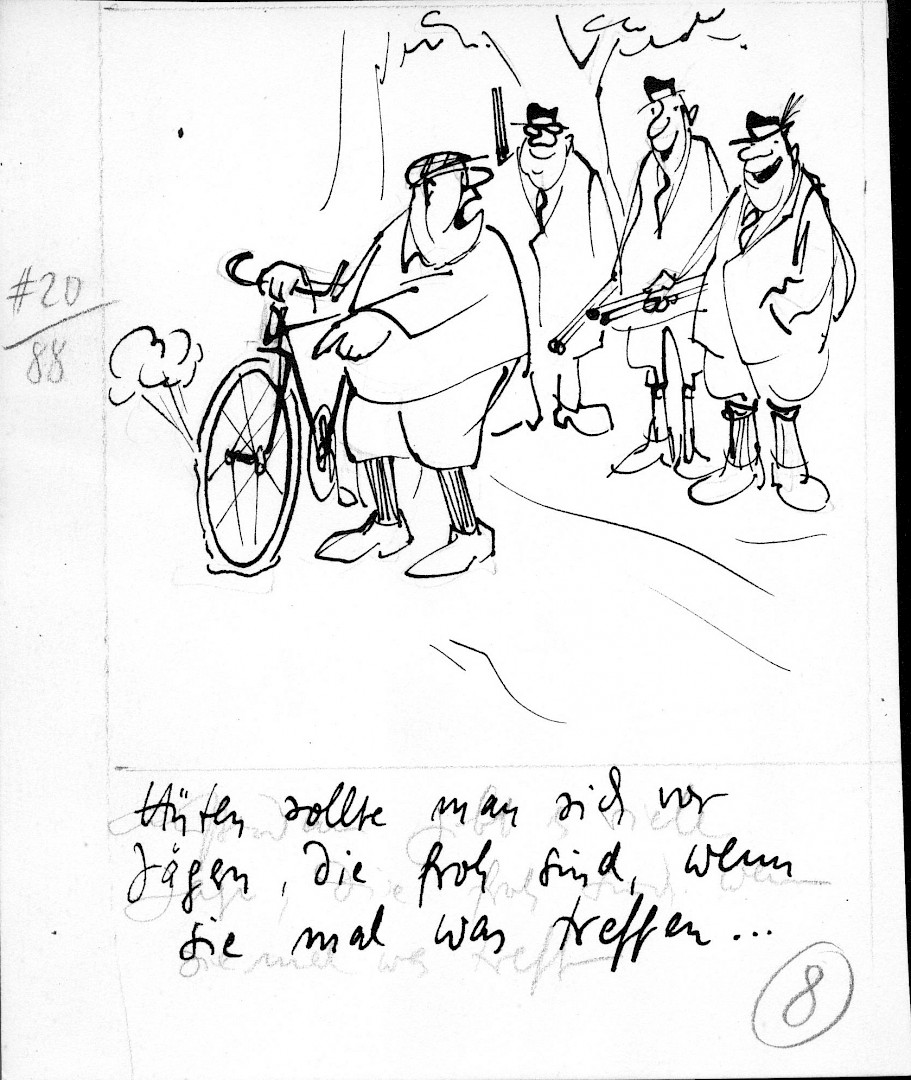 #20
88
Hüten sollte man sich vor
Jägern, die froh sind, wenn
sie mal was treffen...
8